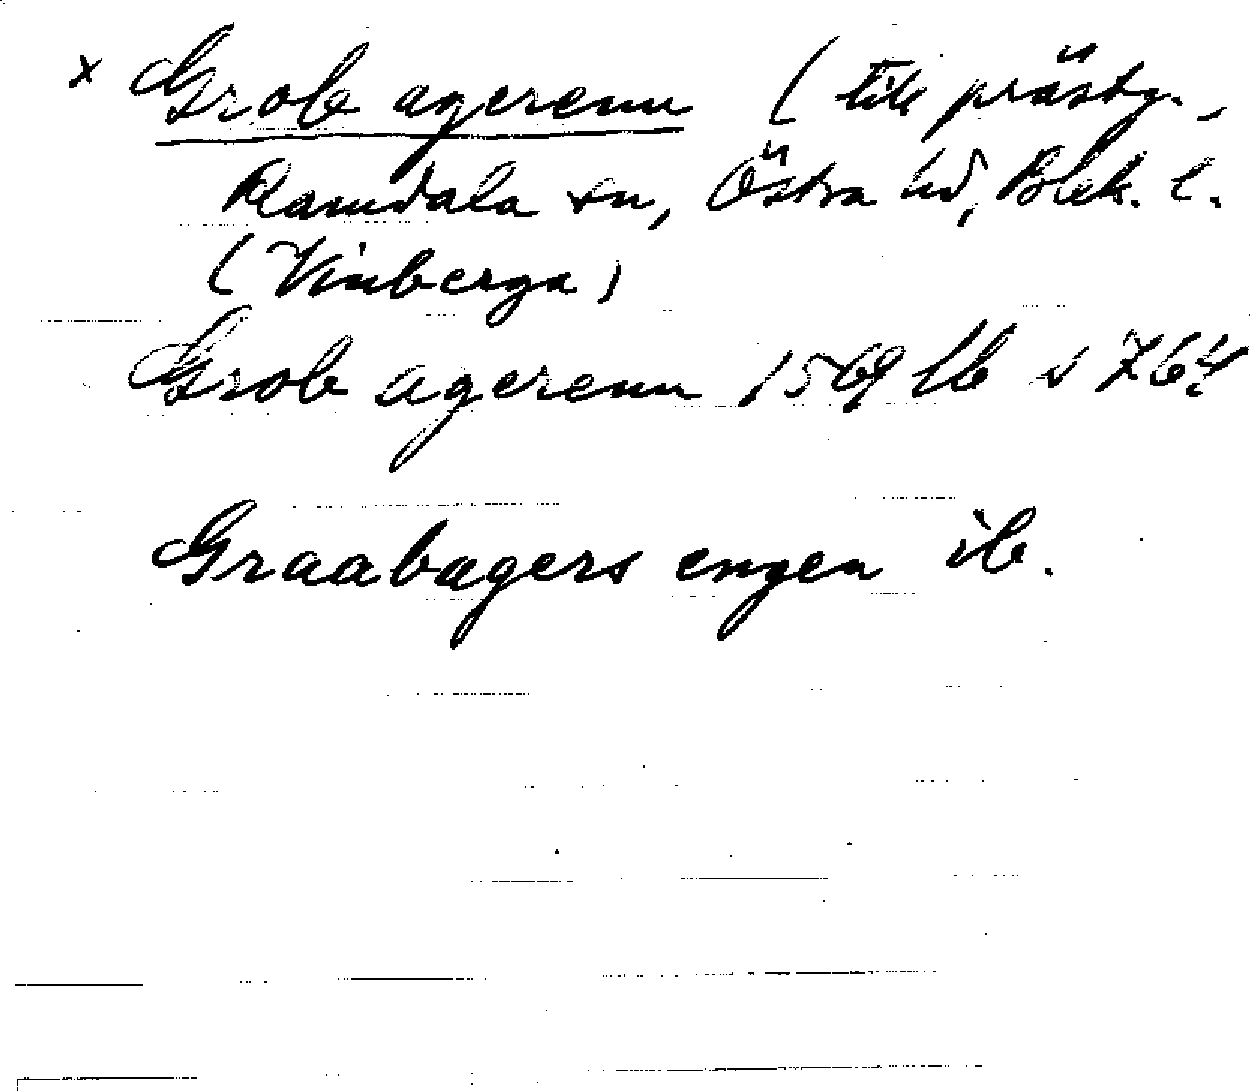 x Grob agerenn (till prästg.,
Ramdala sn, Östra hd, Blek. l.
(Vinberga)
Grob agerenn 1569 lb s 764
Graabagers engen ib.